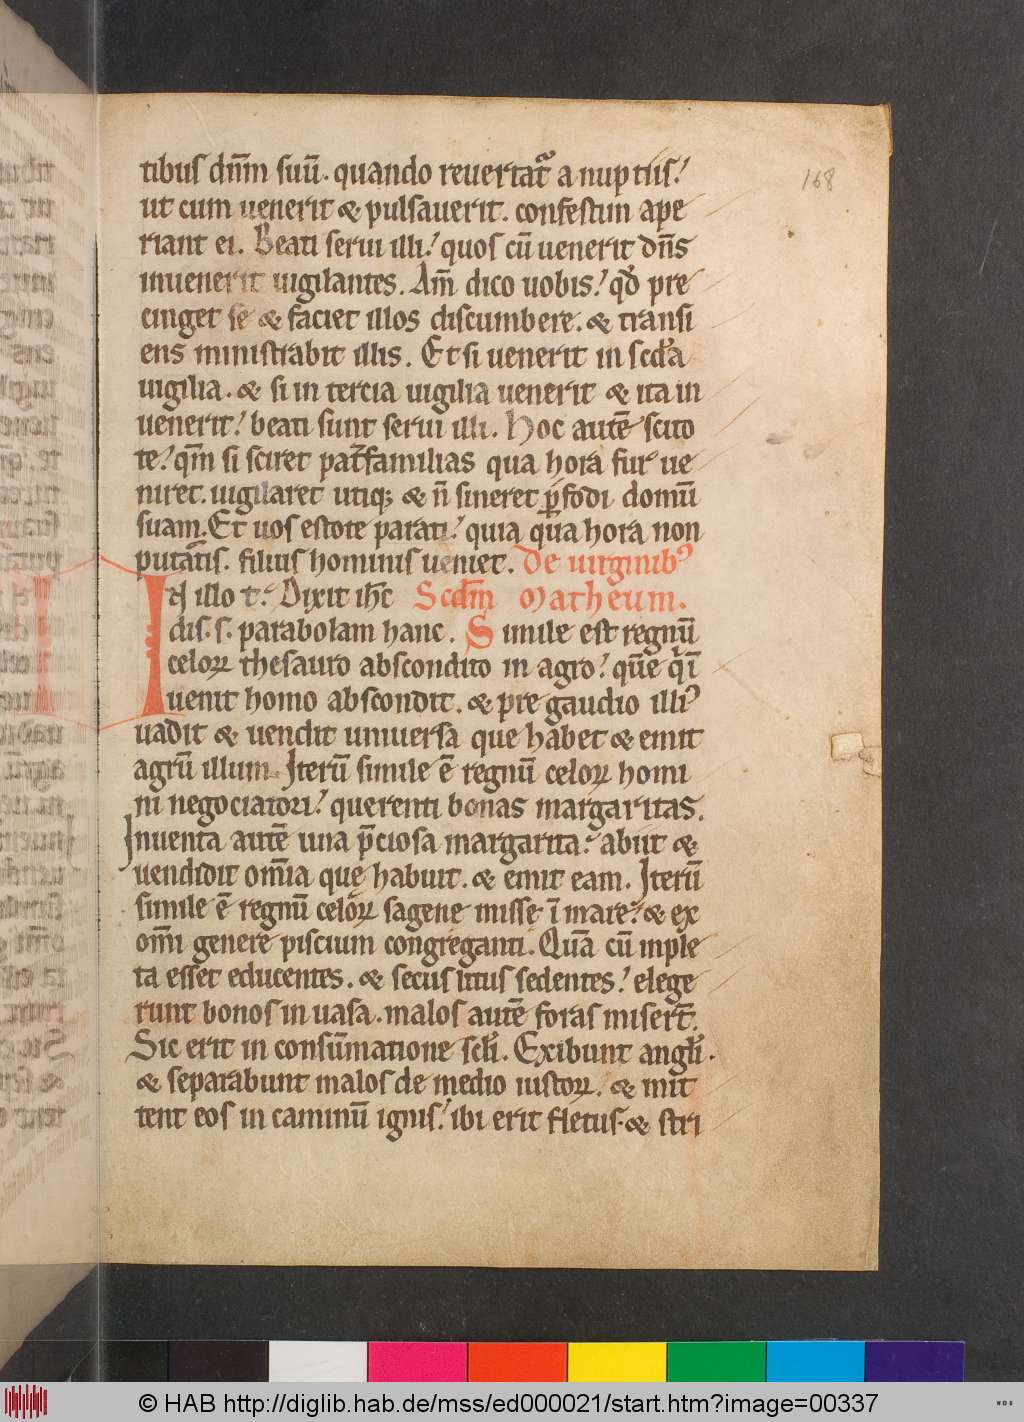 168
tibus dn̄m suū. quando reuertat᷑ a nuptiis.'
ut cum uenerit & pulsauerit. confestim ape
riant ei. Beati serui illi.' quos cū uenerit dn̄s
inuenerit uigilantes. Am̄ dico uobis.' qd̓ pre
cinget se & faciet illos discumbere. & transi
ens ministrabit illis. Et si uenerit in scd̓a
uigilia. & si in tercia uigilia uenerit & ita in
uenerit.' beati sunt serui illi. Hoc autē scito
te.' qm̄ si sciret pat̄familias qua hora fur ue
niret. uigilaret utiqꝫ & n̄ sineret ꝑfodi domū
suam. Et uos estote parati.' quia qua hora non
putatis. filius hominis ueniet. De uirginibꝰ
In illo t.' Dixit ih̄c Scdm̄ Matheum.
dis. s. parabolam hanc. Simile est regnū
celoꝝ thesauro abscondito in agro.' quē qī
uenit homo abscondit. & pre gaudio illiꝰ
uadit & uendit uniuersa que habet & emit
agrū illum. Iterū simile ē regnū celoꝝ homi
ni negociatori.' querenti bonas margaritas.
Inuenta autē una p̄ciosa margarita.' abiit &
uendidit om̄ia que habuit. & emit eam. Iterū
simile ē regnū celoꝝ sagene misse ī mare.' & ex
om̄i genere piscium congreganti. Quā cū inple
ta esset educentes. & secus litus sedentes.' elege
runt bonos in uasa. malos autē foras misert̄.
Sic erit in consūmatione scl̓i. Exibunt angl̓i.
& separabunt malos de medio iustoꝝ. & mit
tent eos in caminū ignis.' ibi erit fletus. & stri
© HAB http://diglib.hab.de/mss/ed000021/start.htm?image=00337